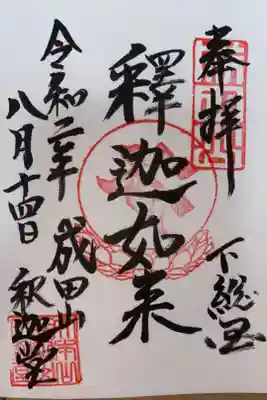 奉拝
下総国
釋迦如来
令和二年
八月十四日
成田山
釈迦堂